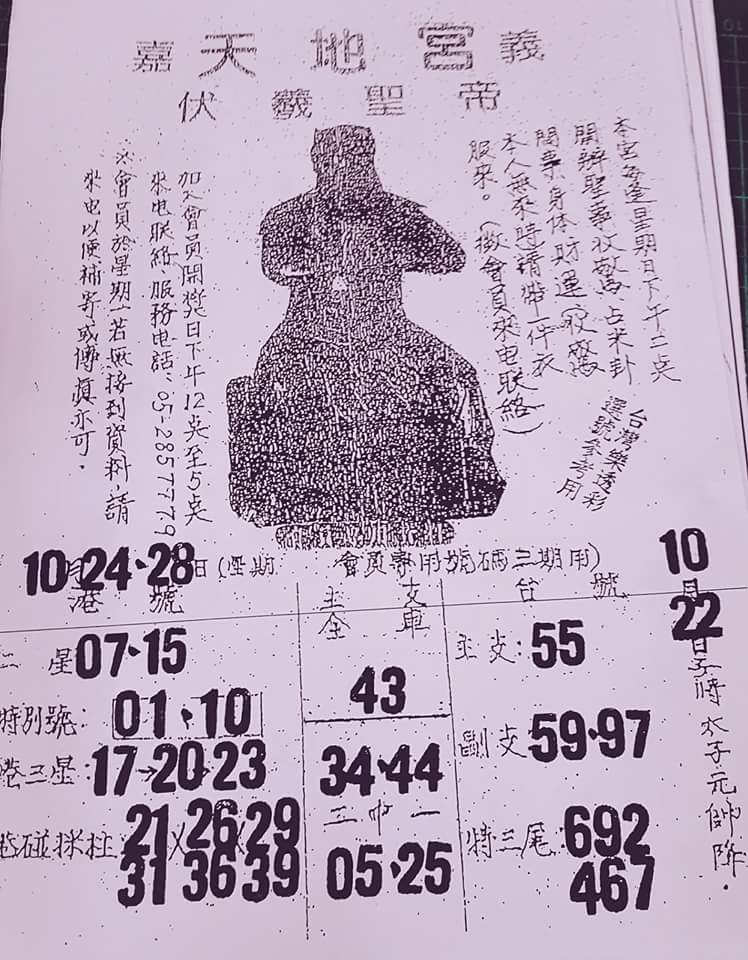 嘉 天地宮 義
伏羲聖帝
本宮每逢星期日下午二点
開辦聖事收驚、占米卦
問事、身体、財運
本人無來時請帶一件衣
服來。(徵會員來电联絡)
台灣樂透彩
選號參考用
加入會員開奬日下午12点至5点
來电联絡、服務电話:05-2857779
※會員於星期一若無接到資料、請
來电以便補寄或傳真亦可.
10月24·28日(星期 會員專用號碼三期用)
港 號
二 星 07·15
特別號: 01·10
港三星:17→20→23
港碰球柱 21×26×29
31 36 39
主 支
全 車
43
34·44
二中一
05·25
台 號
主支:55
副支 59·97
特三尾:692
467
10月22日子時太子元帥降.